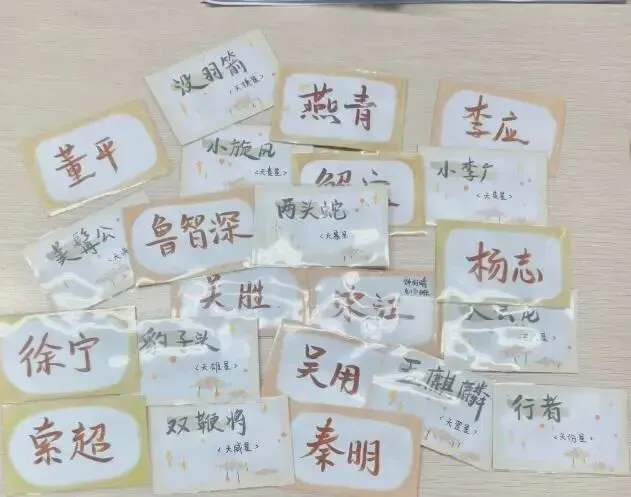 没羽箭
<天捷星>
燕青
李应
董平
小旋风
<天贵星>
小李广
<天英星>
两头蛇
<天暮星>
鲁智深
美髯公
杨志
吴胜
宋江
徐宁
豹子头
<天雄星>
吴用
玉麒麟
<天罡星>
行者
<天伤星>
索超
双鞭将
<天威星>
秦明